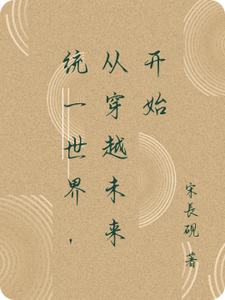 统一世界，
从穿越未来
开始
宋長硯 著